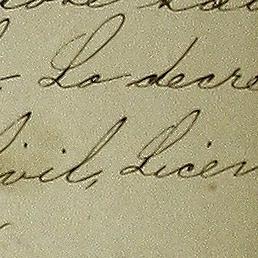 - Lo decre
ivil, Licen